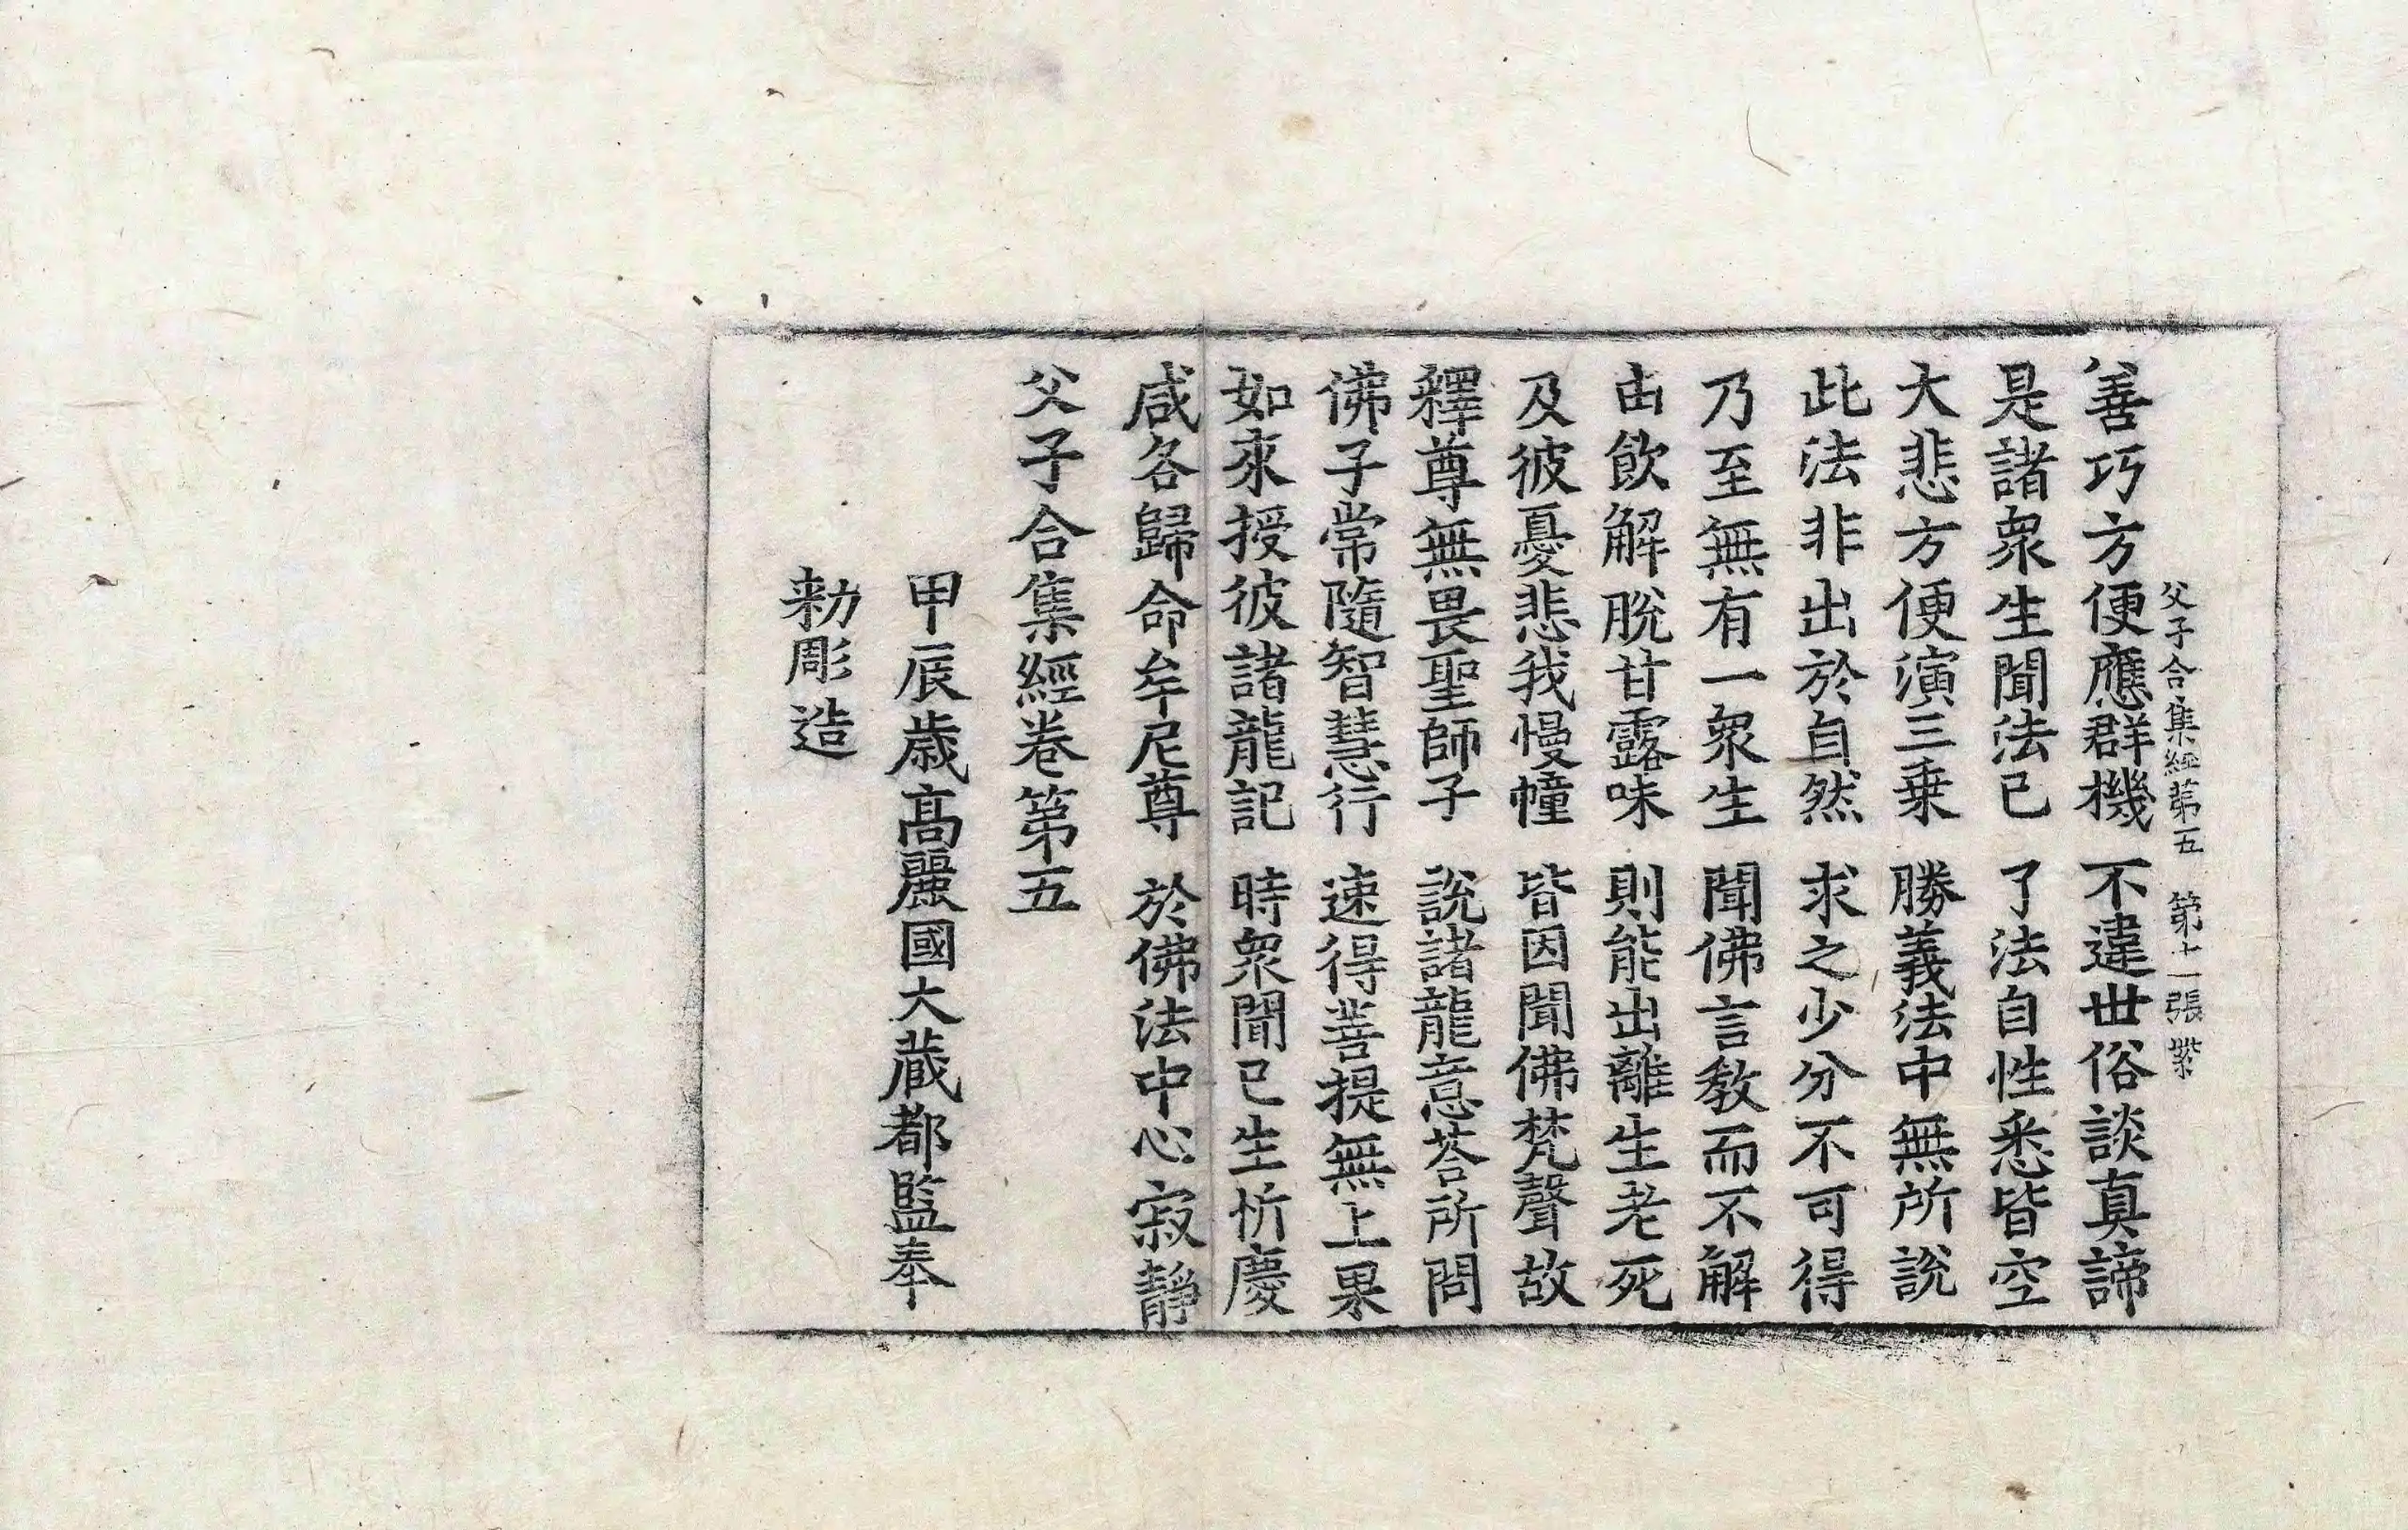 父子合集經第五 第十一張 業
善巧方便應群機 不違世俗談真諦
是諸衆生聞法已 了法自性悉皆空
大悲方便演三乗 勝義法中無所說
此法非出於自然 求之少分不可得
乃至無有一衆生 聞佛言教而不解
由飲解脫甘露味 則能出離生老死
及彼憂悲我慢幢 皆因聞佛梵聲故
釋尊無畏聖師子 說諸龍意荅所問
佛子常隨智慧行 速得菩提無上果
如來授彼諸龍記 時衆聞已生忻慶
咸各歸命牟尼尊 於佛法中心寂靜
父子合集經卷第五
甲辰歲高麗國大藏都監奉
勑彫造